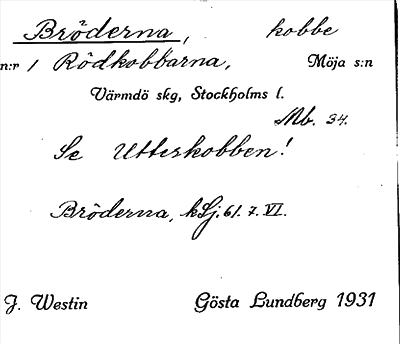 Bröderna, kobbe
n:r / Rödkobbarna, Möja s:n
Värmdö skg, Stockholms l.
Mb. 34.
Se Utterkobben!
Bröderna, kSj. 61. 7. VI.
J. Westin Gösta Lundberg 1931